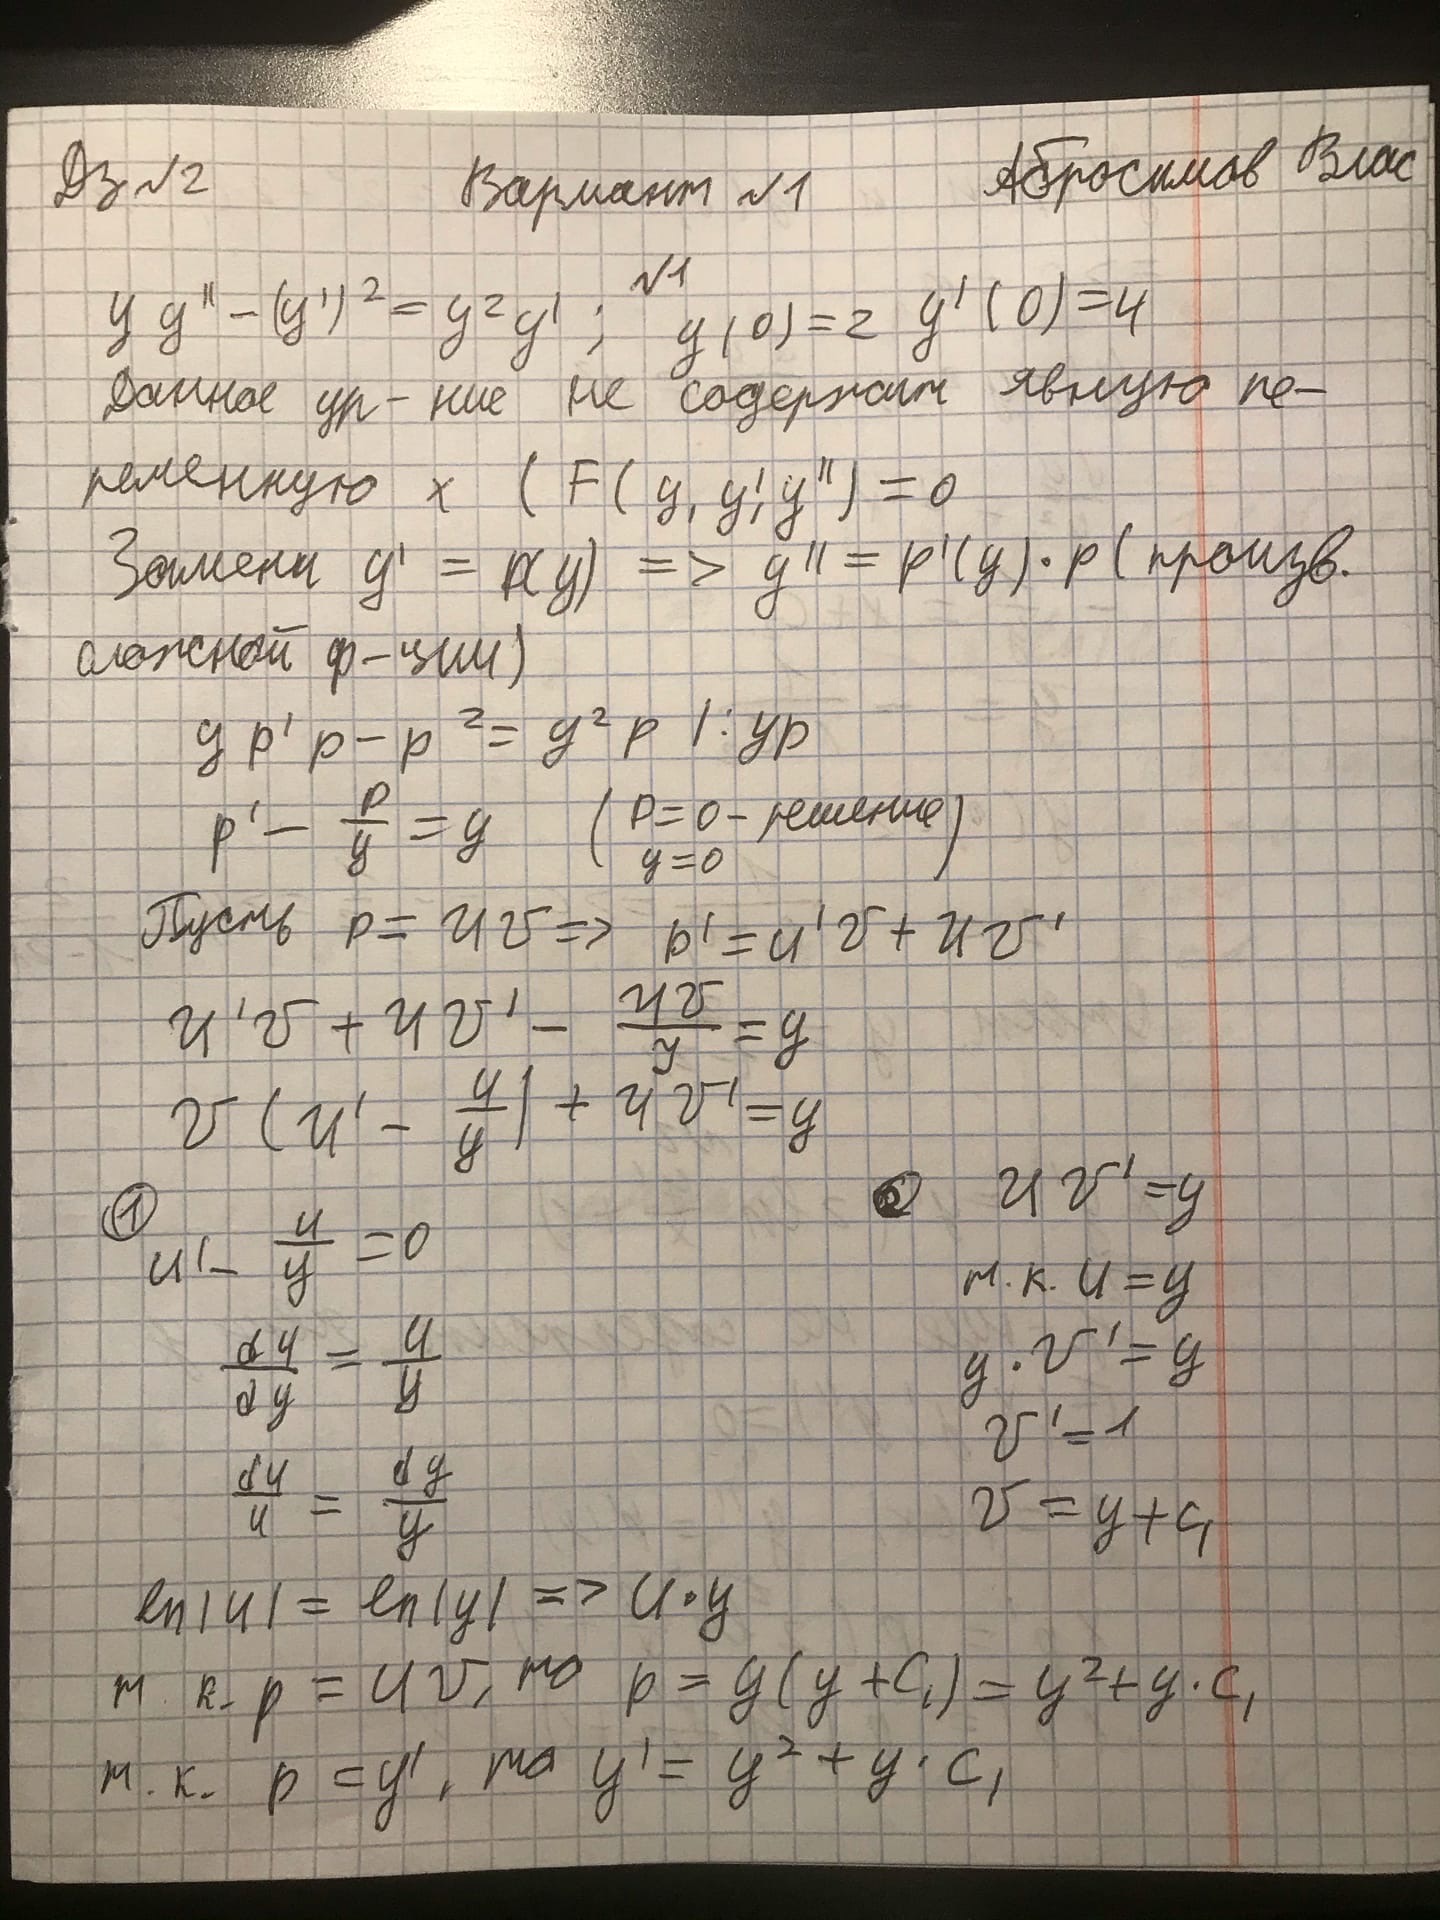 ДЗ №2 Вариант №1 Абросимов Влас
№1
y y'' - (y')² = y² y' ; y(0) = 2 y'(0) = 4
Данное ур-ние не содержит явную пе-
ременную x (F(y, y', y'') = 0
Замена y' = p(y) => y'' = p'(y) · p (произв.
сложной ф-ции)
y p' p - p² = y² p |: yp
p' - p/y = y (p = 0 - решение)
y = 0
Пусть p = uv => p' = u'v + uv'
u'v + uv' - uv/y = y
v (u' - u/y) + uv' = y
① u' - u/y = 0
du/dy = u/y
du/u = dy/y
ln|u| = ln|y| => u · y
uv' = y
т.к. u = y
y · v' = y
v' = 1
v = y + c₁
т. к. p = uv, то p = y(y + C₁) = y² + y · c₁
т. к. p = y', то y' = y² + y · c₁